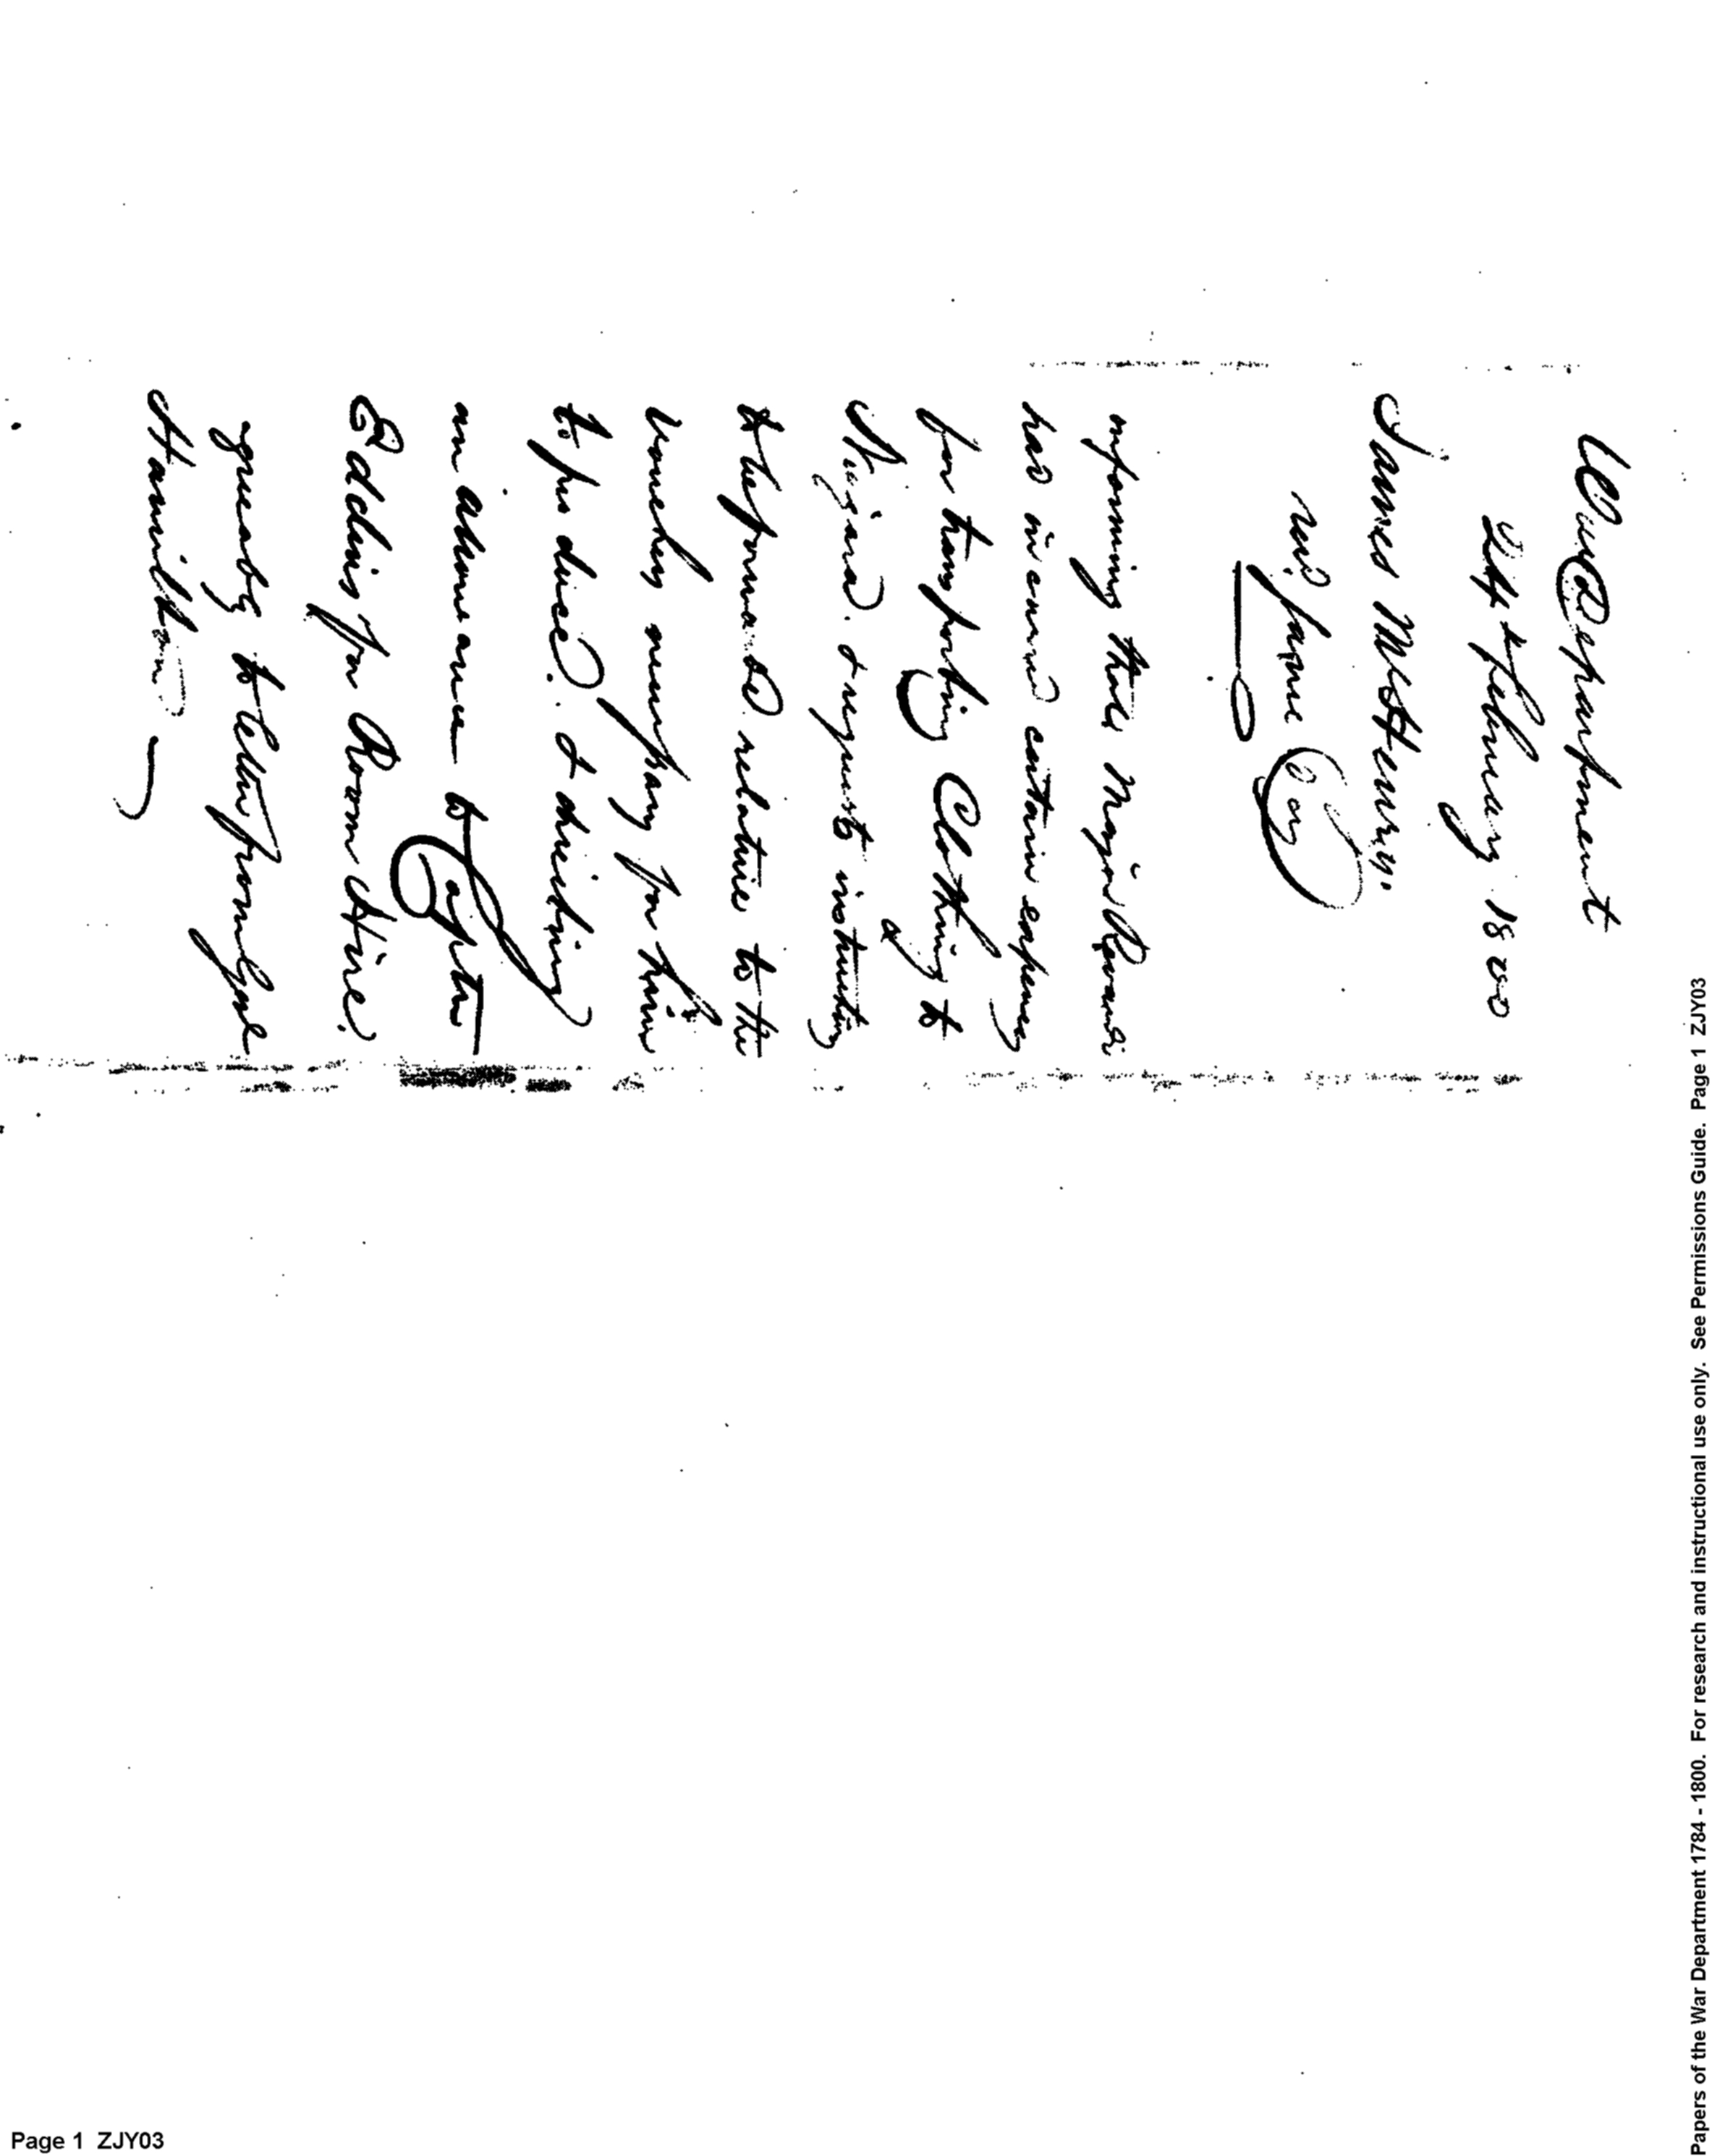 War Department
24th February 1800
James McHenry.
recd same Day
informing that Major Rivardi
has incurred certain expenses
for transporting Clothing to
Niagara. & requests instructions
to be forwarded relative to the
vouchers necessary for him
to produce. & directing
an allowance to Captn
Eddins for Room Hire.
to letter from Genl
Hamilton
Papers of the War Department 1784 - 1800. For research and instructional use only. See Permissions Guide. Page 1 ZJY03
Page 1 ZJY03